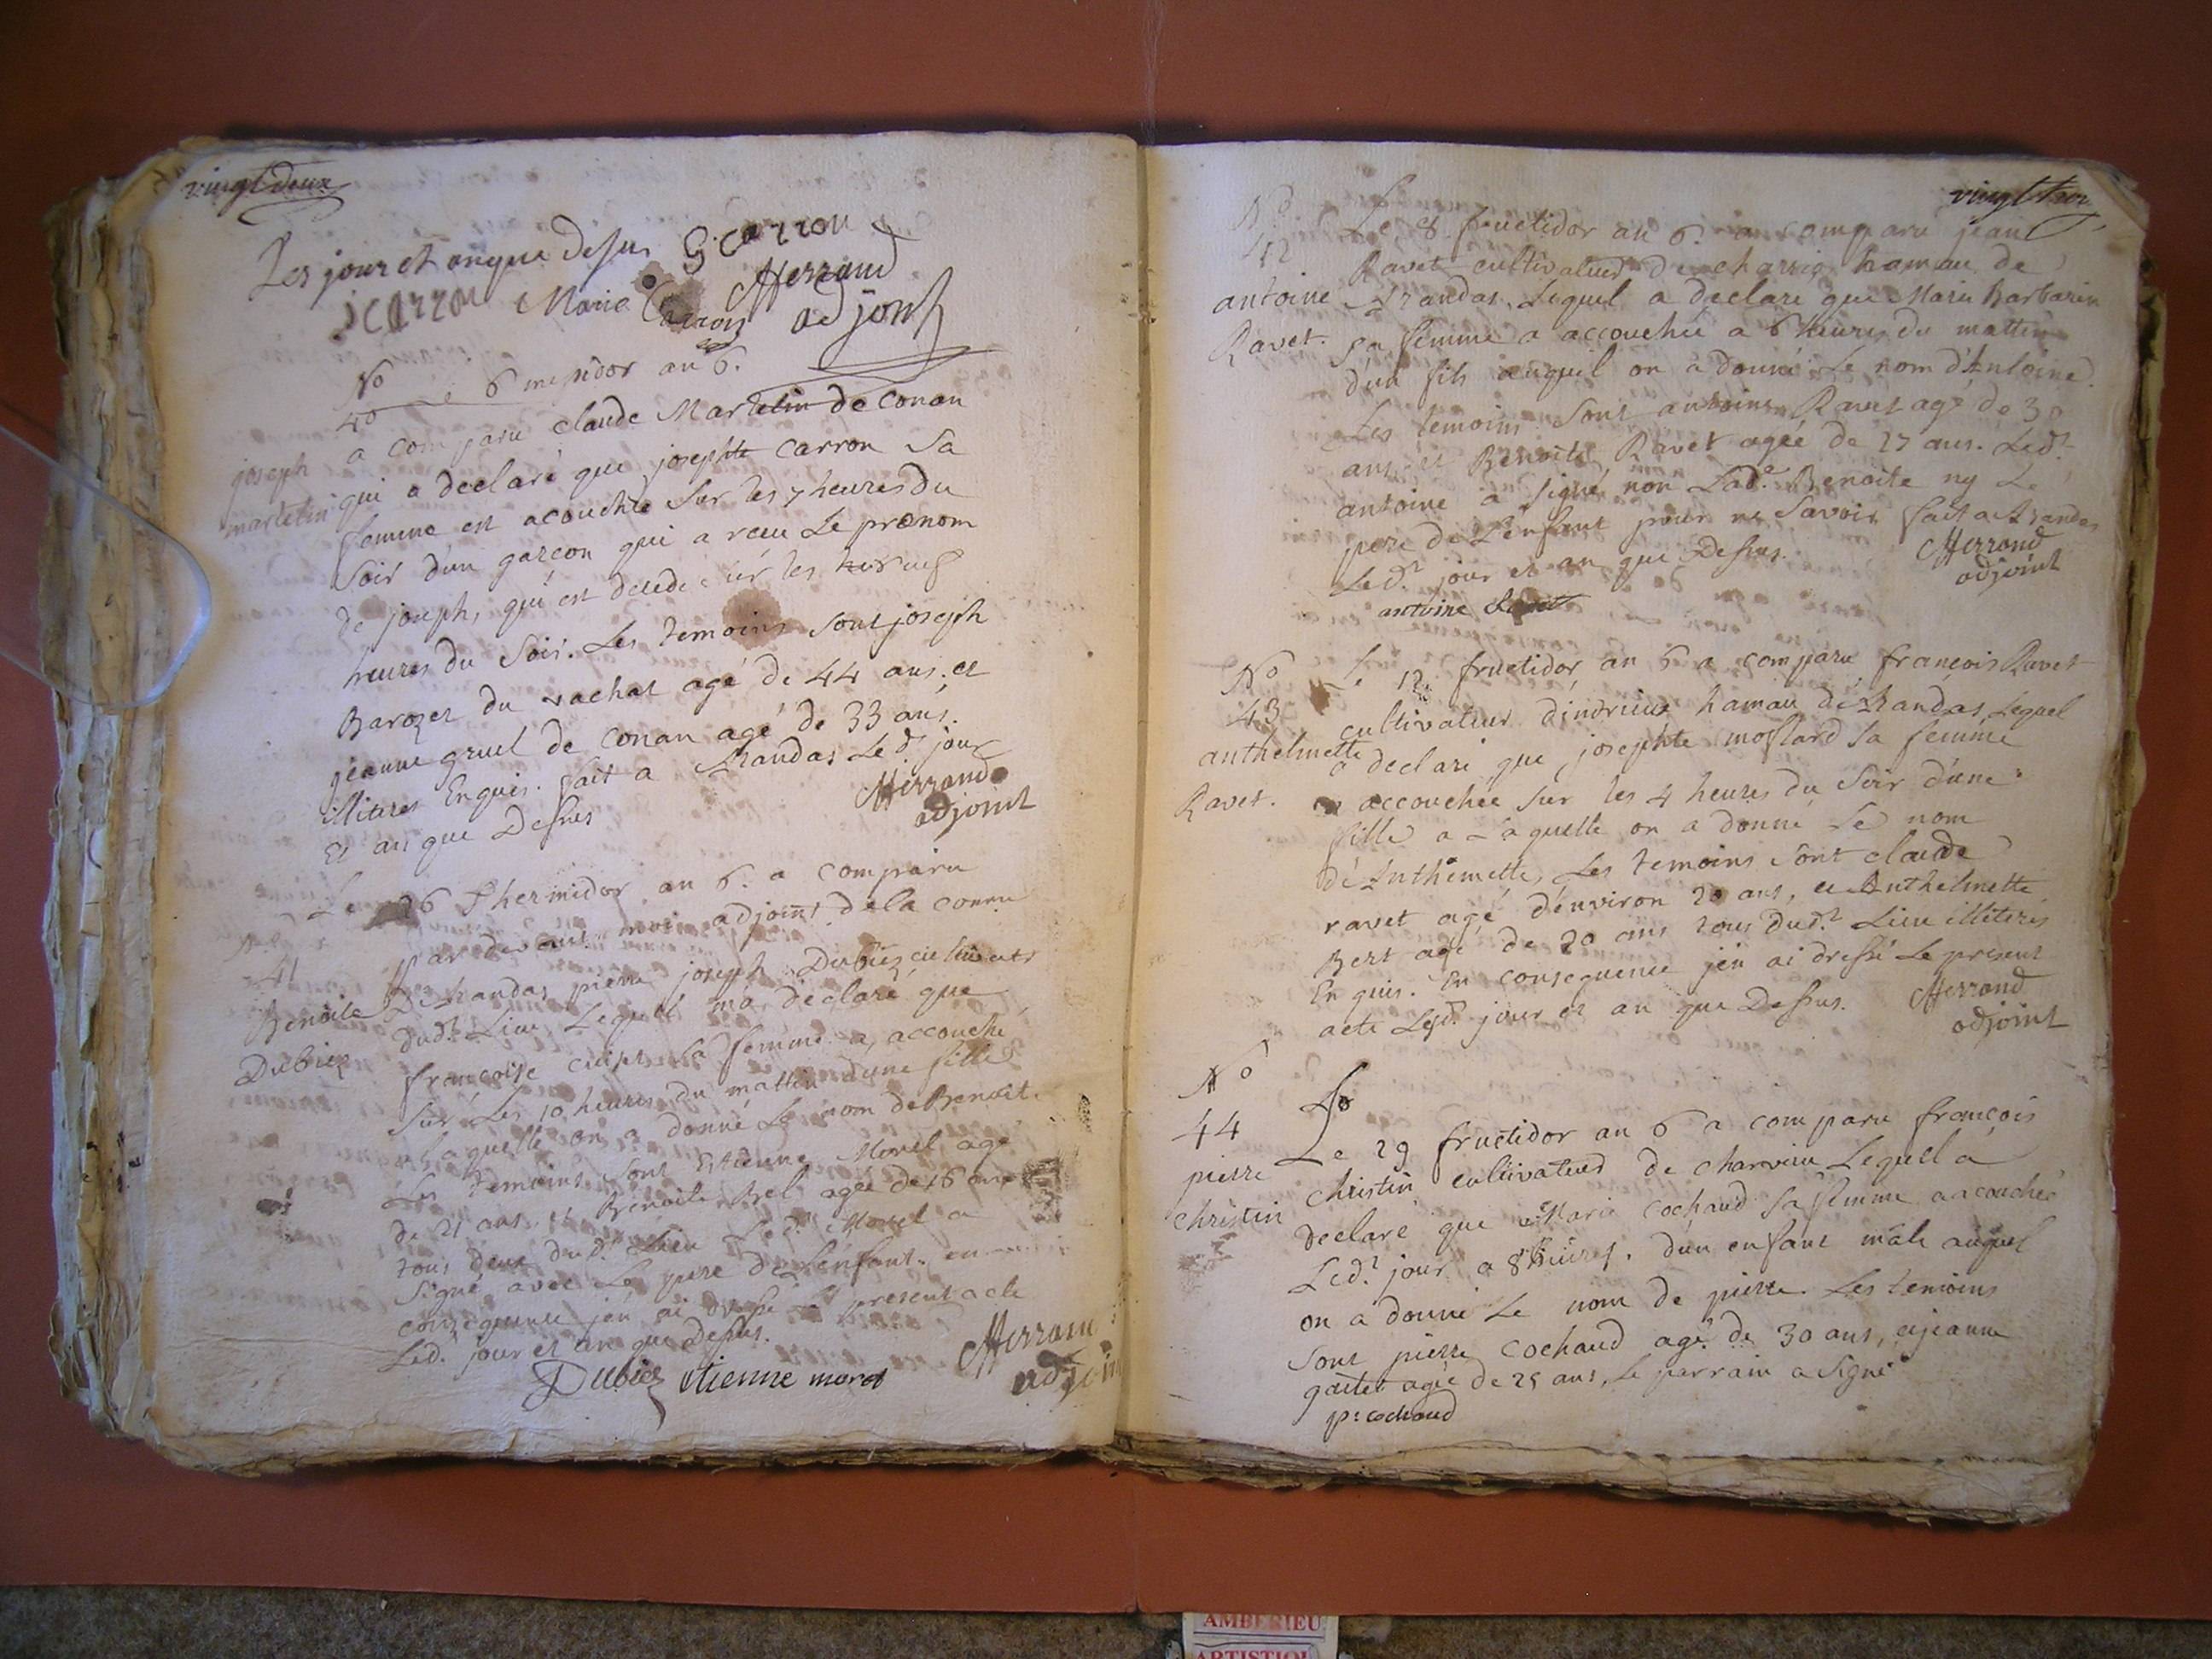 vingt deux
Les jour et an que dessus G carron
J carron Marie Carron Merrand
adjoint
No
40 Le 6 messidor an 6.
a comparu claude Martelin de Conan
joseph
martelin
qui a declaré que josephte Carron Sa
femme est acouchée sur les 7 heures du
Soir dun garcon qui a recu Le prenom
de joseph, qui est decedé sur les
heures du Soir. Les temoins sont joseph
Barozer du vachat agé de 44 ans. et
jeanne gruel de Conan agé de 33 ans.
illiteres Enquis. fait a Arandas Led. jour
Et an que Dessus
Merrand
adjoint
Le 26 Thermidor an 6. a comparu
No
41
Benoite
Dubiez
Par devant moi adjoint de la comu
D'Arandas pierre joseph Dubiez cultivateur
dud.t Lieu Lequel m'a declaré que
francoise sa femme a accouché
Sur Les 10 heures du mattin d'une fille
a Laquelle on a donné Le nom de Benoit.
Les temoins sont Etienne Morel agé
de 21 ans. et Benoite Bel agée de 16 ans
tous deux dud.t Lieu Led.t Morel a
Signé avec Le pere de L'enfant. en
consequence j'en ai dressé Le present acte
Led.t jour et an que Dessus.
Dubiez etienne morel
Merrand
adjoint
vingt trois
No
42
antoine
Ravet.
Le 8 fructidor an 6. a comparu jean
Ravet cultivateur de charvis hamau de
Arandas. Lequel a declaré que Marie Barbarin
sa femme a accouchée a 6 heures du mattin
d'un fils auquel on a donné Le nom d'Antoine.
Les temoins Sont antoine Ravet agé de 30
ans et Benoite Ravet agée de 27 ans. Led.t
antoine a signé non Lad.e Benoite ny Le
pere de L'enfant pour ne Savoir fait a Arandas
Led.t jour et an que Dessus.
Merrand
adjoint
antoine Ravet
No
43
anthelmette
Ravet.
Le 12 fructidor an 6 a comparu francois Ravet
cultivateur d'indrieux hamau d'Arandas Lequel
a declaré que josephte mostard sa femme
a accouchée sur les 4 heures du Soir d'une
fille a Laquelle on a donné Le nom
d'Anthemette, Les temoins Sont claude
ravet agé d'environ 20 ans, et Anthelmette
Bert agé de 20 ans tous dud.t Lieu illiteres
Enquis. En consequence j'en ai dressé Le present
acte Led.t jour et an que Dessus.
Merrand
adjoint
No
44
pierre
christin
Le
Le 29 fructidor an 6 a comparu françois
christin cultivateur de charvieu Lequel a
declaré que Marie Cochaud sa femme a acouchée
Led.t jour a 8 heures. d'un enfant mâle auquel
on a donné Le nom de pierre. Les temoins
Sont pierre Cochaud agé de 30 ans, et jeanne
agée de 25 ans, Le parrain a Signé
p: cochaud
AMBERIEU